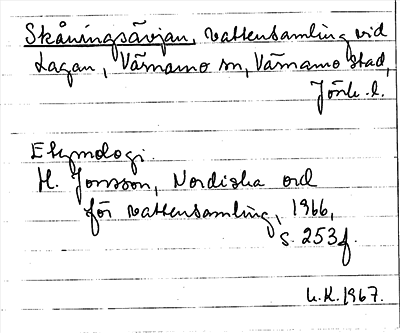 Skåningsävjan, vattensamling vid
Lagan, Värnamo sn, Värnamo stad,
Jönk. l.
Etymologi
H. Jonsson, Nordiska ord
för vattensamling, 1966,
s. 253f.
U.K. 1967.